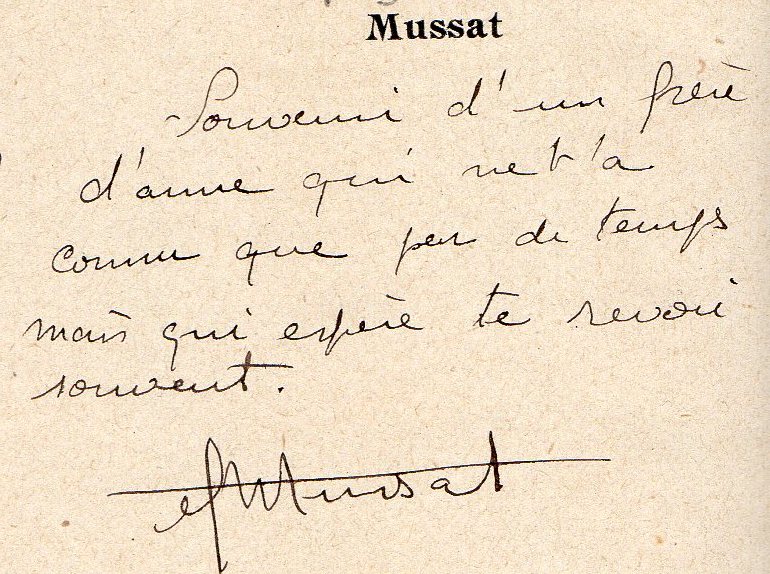 Mussat
Souvenir d'un frère
d'arme qui ne t'a
connu que peu de temps
mais qui espère te revoir
souvent.
Mussat